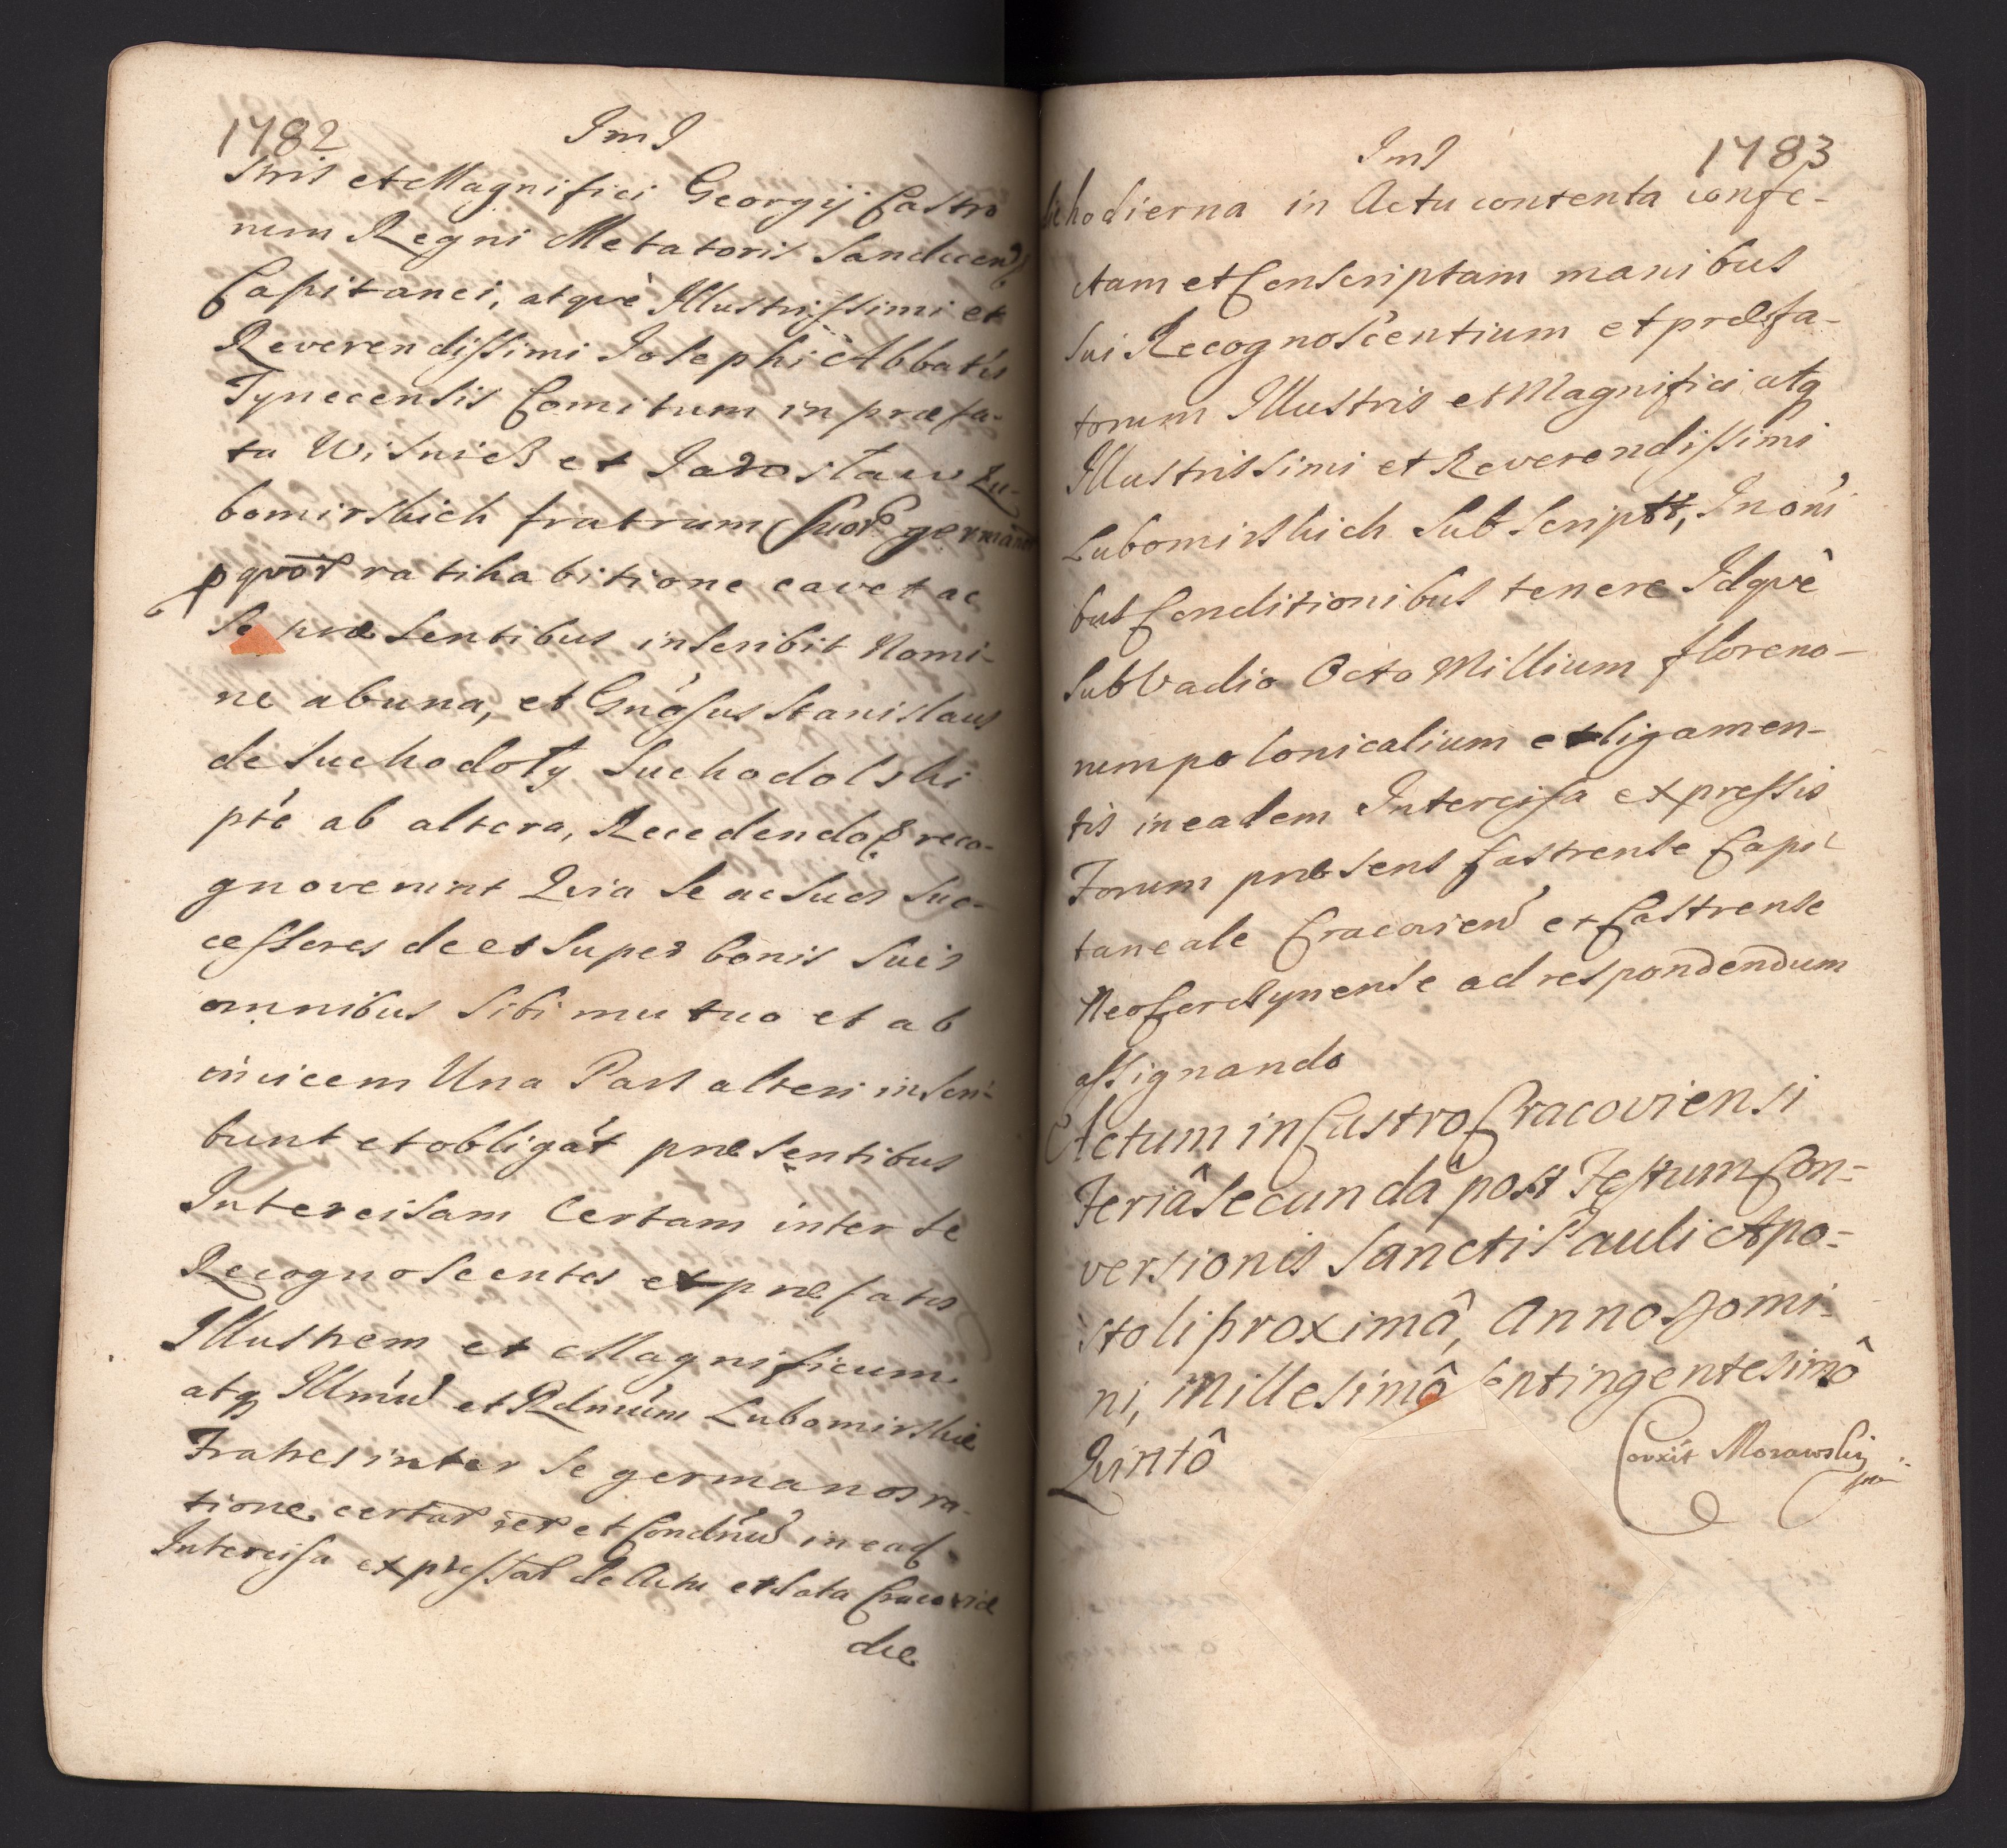 1782 ImI
stris et Magnifici Georgij Castro
rum Regni Metatoris Sandecen̄
Capitanei, atqvè Illustrissimi et
Reverendissimi Josephi Abbatis
Tynecensis Comitum in præfa-
ta Wisnicz et Jarosław Lu-
bomirskich fratrum suor̄ german̄
pqvōr ratihabitione cavet ac
Se præsentibus inscribit Nomi-
ne ab una, et Gnősus Stanislaus
de Suchodoły Suchodolski
pte ab altera, Recedendo & reco-
gnoverunt Qvia Se ac Suos Suc-
cessores de et Super bonis Suis
omnibus Sibi mutuo et ab
invicem Una Pars alteri inscri-
bunt et obligāt præsentibus
Intercisam Certam inter se
Recognoscentes et præfatos
Illustrem et Magnificum
atq Illmūm et Rdmūm Lubomirskie
Fratres inter Se germanos ra-
tione certar̄ rer̄ et Condnūm in ead
Intercisa expressar̄ de Actu et data Cracoviæ
die
ImI 1783
die hodierna in Actu contenta confe-
ctam et Conscriptam manibus
Sui Recognoscentium et præfa-
torum Illustris et Magnifici atq
Illustrissimi et Reverendissimi
Lubomirskich Subscriptt, In om̄i
bus Conditionibus tenere Idqvè
Sub Vadio Octo Millium floreno-
rum polonicalium et ligamen-
tis in eadem Intercisa expressis
Forum præsens Castrense Capi
taneale Cracovien̄ et Castrense
NeoCorczynense ad respondendum
assignando
Actum in Castro Cracoviensi
Feriâ Secundâ post Festum Con-
versionis Sancti Pauli Apo-
stoli proximâ, Anno Domi-
ni, Millesimô Sbtingentesimô
Qvintô
Corrxit Morawski
mp